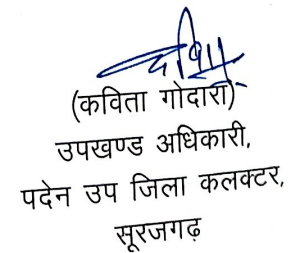 (कविता गोदारा)
उपखण्ड अधिकारी,
पदेन उप जिला कलक्टर,
सूरजगढ़